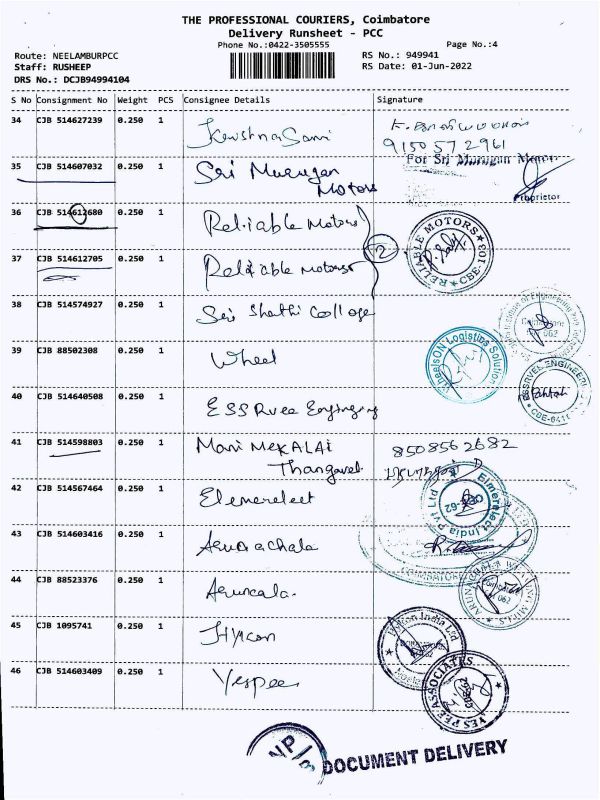 THE PROFESSIONAL COURIERS, Coimbatore
Delivery Runsheet - PCC
Phone No.:0422-3505555 Page No.:4
Route: NEELAMBURPCC RS No.: 949941
Staff: RUSHEEP RS Date: 01-Jun-2022
DRS No.: DCJB94994104
S No Consignment No Weight PCS Consignee Details Signature
34 CJB 514627239 0.250 1 KrishnaSami
9150572961
35 CJB 514607032 0.250 1 Sri Murugan Motors For Sri Murugan Motors
Proprietor
36 CJB 514612680 0.250 1 Reliable Motors
2 RELIABLE MOTORS CBE-103
37 CJB 514612705 0.250 1 Reliable Motors
38 CJB 514574927 0.250 1 Sri Shathi College
39 CJB 88502308 0.250 1 Wheel WheelsON Logistics Solution
40 CJB 514640508 0.250 1 ESSRvee Enginging
41 CJB 514598803 0.250 1 Mani MEKALAI 8508562682
Thangavel
42 CJB 514567464 0.250 1 Elemerelect Elmerelect India Pvt Ltd
43 CJB 514603416 0.250 1 Arunachala
44 CJB 88523376 0.250 1 Arunkala.
45 CJB 1095741 0.250 1 Hycon
46 CJB 514603409 0.250 1 Yespee YES PEE ASSOCIATES
NP/8 DOCUMENT DELIVERY